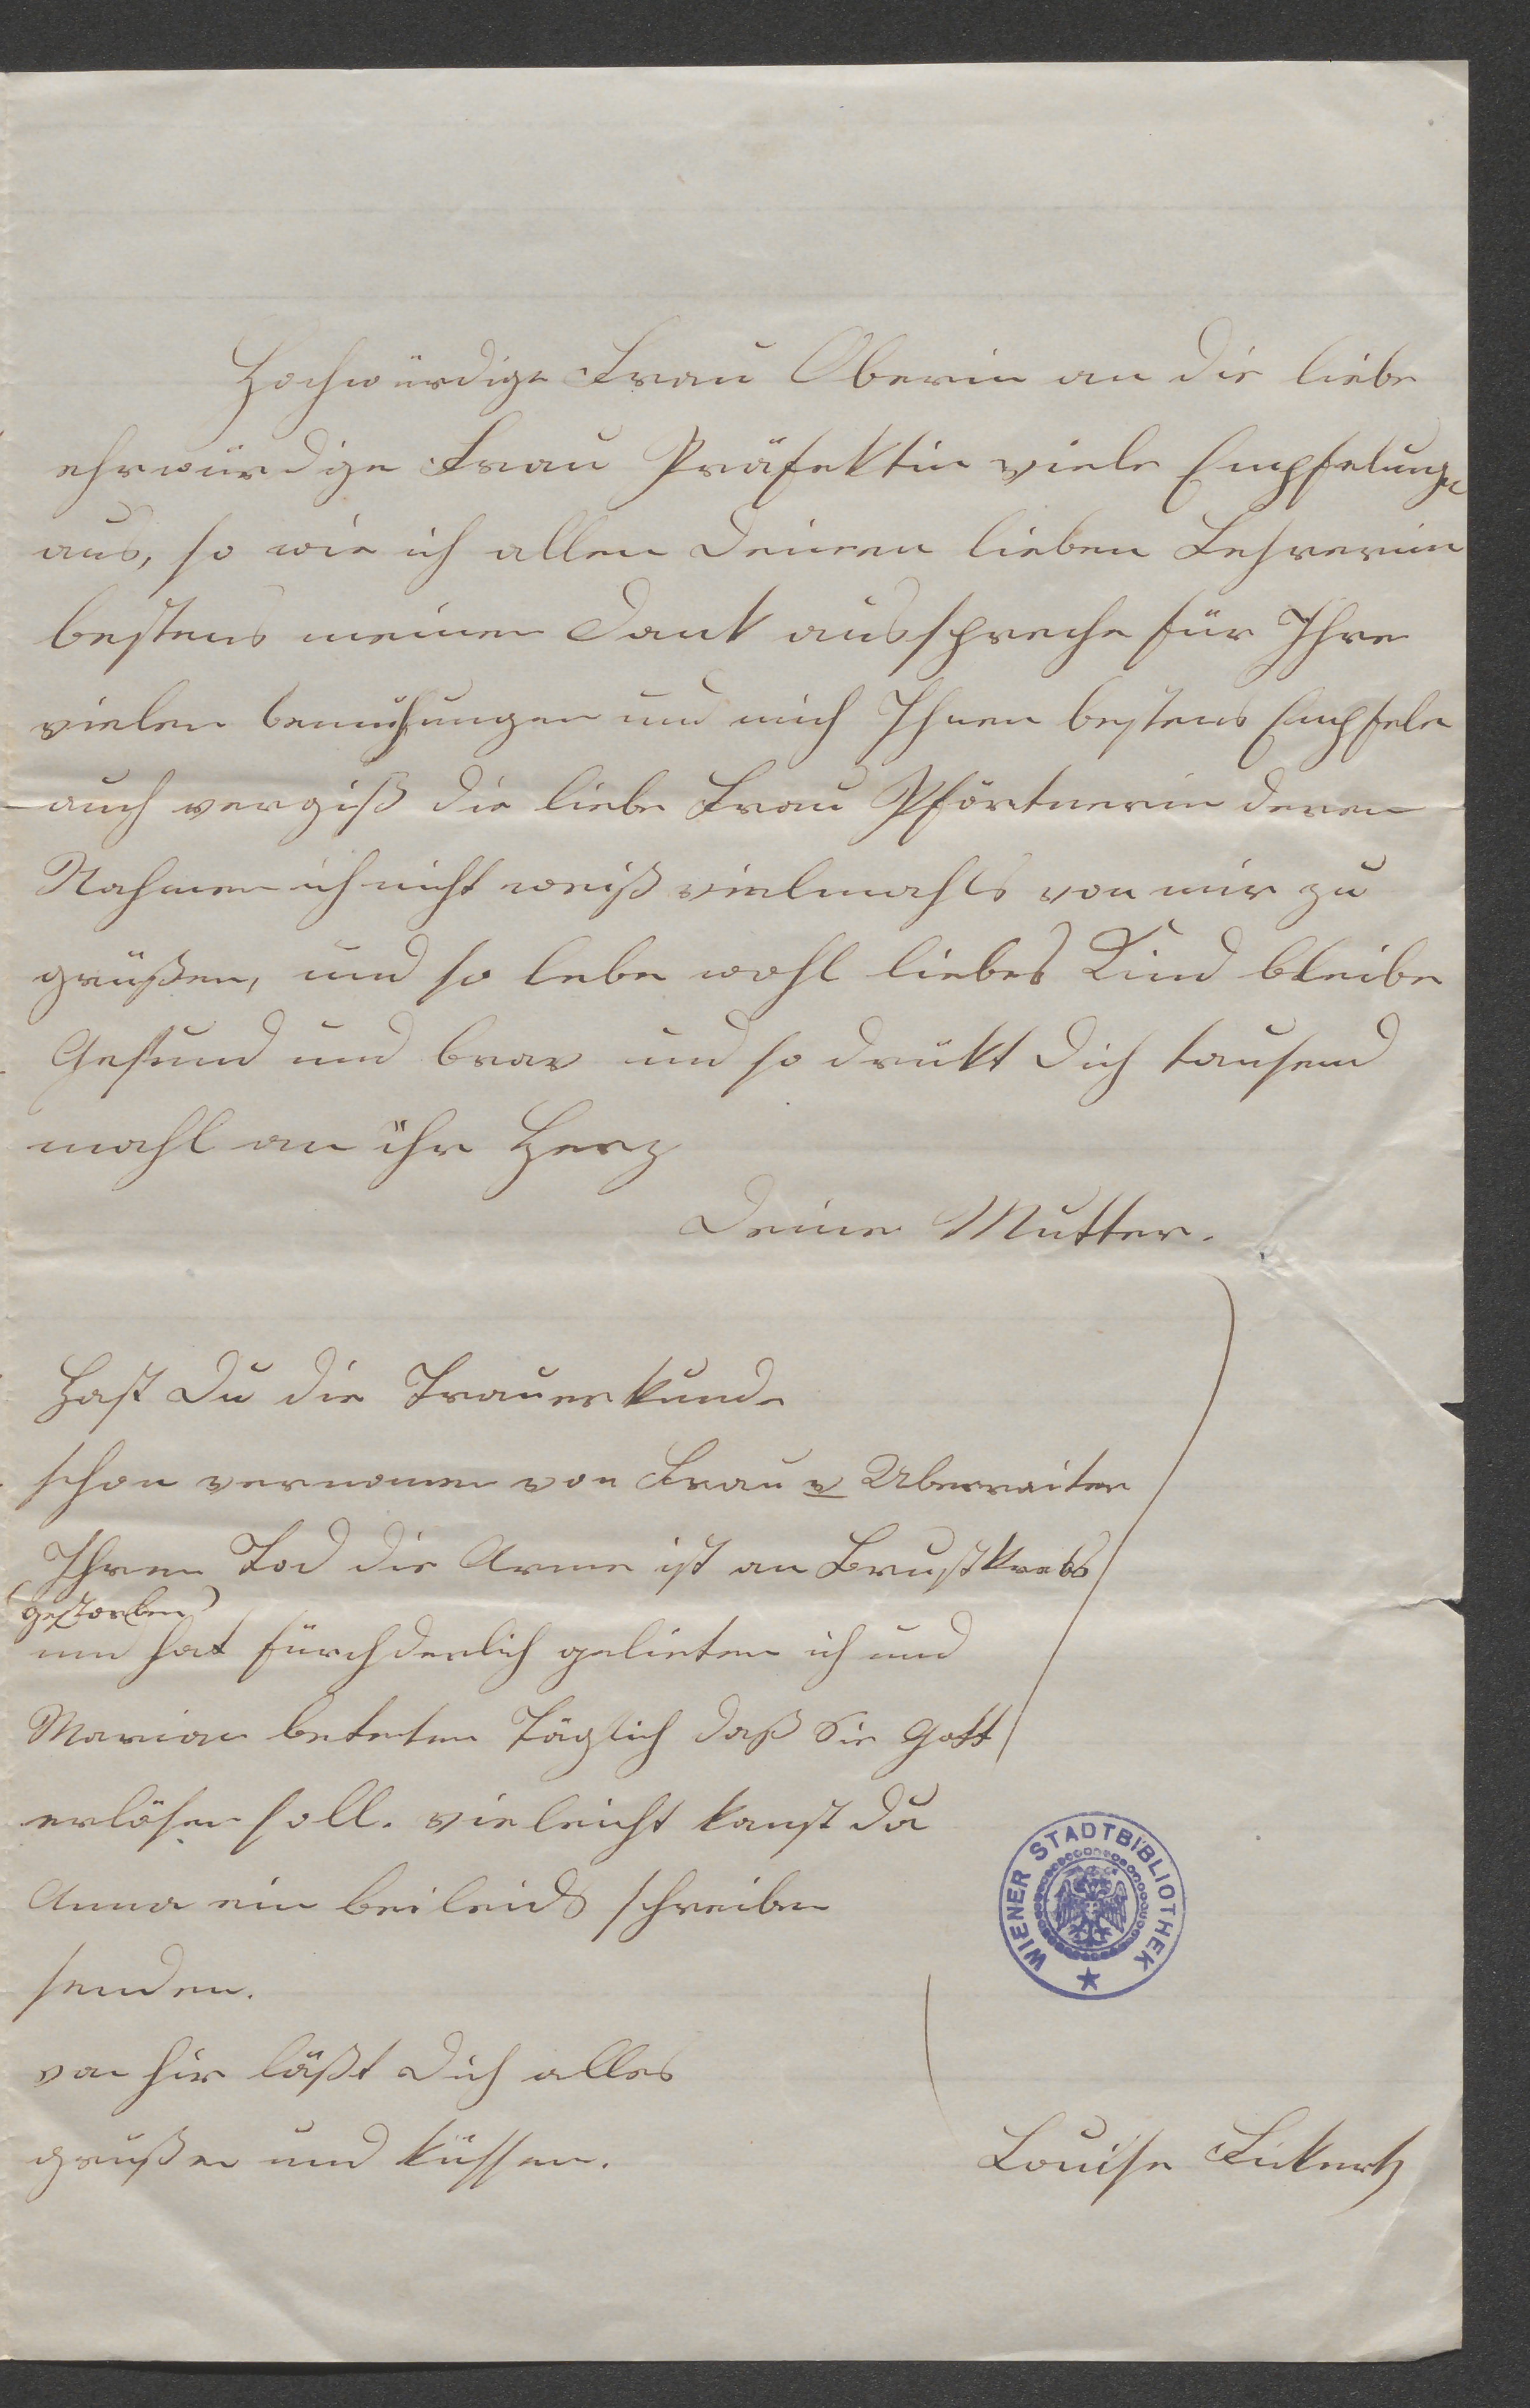 Hochwürdige Frau Oberin an die liebe
ehrwürdige Frau Präfektin viele Empfelungen
aus, so wie ich allen Deinen lieben Lehrerinn
bestens meinen Dank ausspreche für Ihre
vielen bemühungen und mich Ihnen bestens Empfele
auch vergiß die liebe Frau Pförtnerin deren
Nahmen ich nicht weiß vielmahls von mir zu
grüßen, und so lebe wohl liebes Kind bleibe
Gesund und brav und so drükt Dich tausend
mahl an ihr Herz
Deine Mutter.
Hast Du die Trauerkunde
schon vernomen von Frau v Uberreiter
Ihren Tod die Arme ist an Brustkrebs
(gestorben)
und hat fürchderlich gelieten ich und
Marian beteten Täglich daß Sie Gott
erlösen soll. vieleicht kanst du
Anna ein beileids schreiben
senden.
von hir läßt Dich alles
grüßen und küssen.
Louise Fikertz
WIENER STADTBIBLIOTHEK